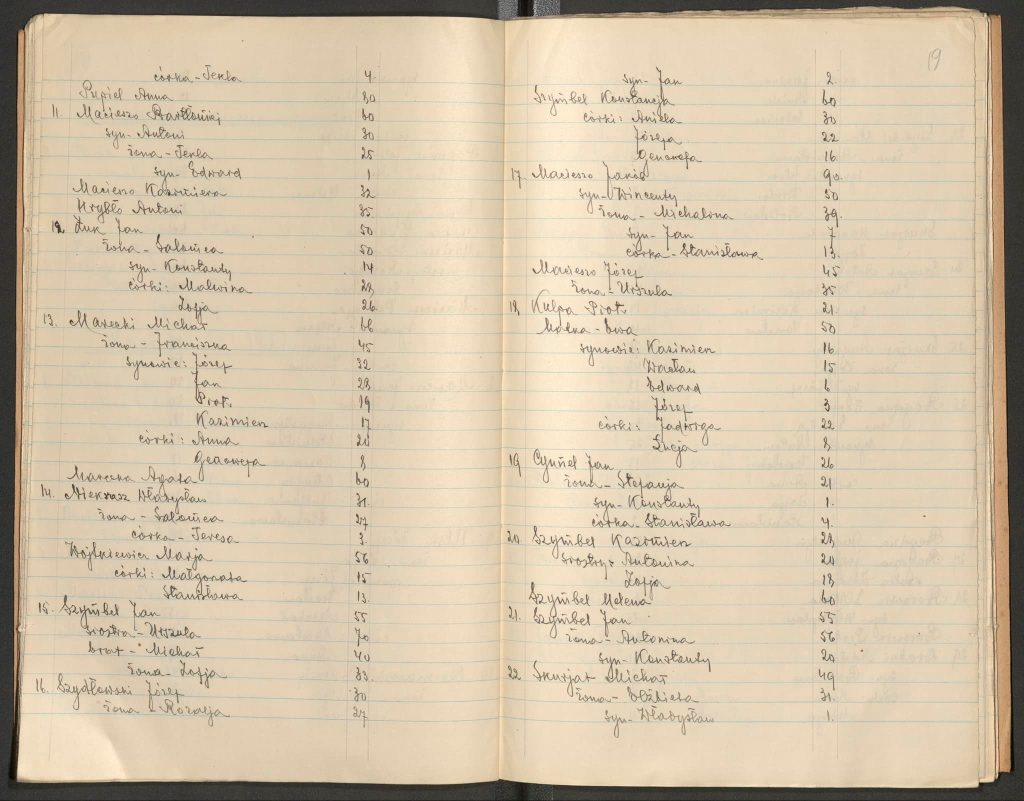 córka - Tekla 4.
Pupiel Anna 80
11. Macieszo Bartłomiej 60
syn - Antoni 30
żona - Tekla 25
syn - Edward 1
Macieszo Kazimiera 32
Hrybło Antoni 35
12. Żuk Jan 50
żona - Salomea 50
syn - Konstanty 14
córki: Malwina 28
Zofja 26
13. Marecki Michał 66
żona - Franciszka 45
synowie: Józef 32
Jan 28
Piotr 19
Kazimierz 17
córki: Anna 20
Genowefa 8
Marecka Agata 60
14. Władysław 31.
żona - Salomea 27
córka - Teresa 3.
Wojtkiewicz Marja 56
córki: Małgorzata 15
Stanisława 13.
15. Szymbel Jan 55
siostra - Urszula 70
brat - Michał 40
żona - Zofja 33.
16. Szydłowski Józef 30
żona - Rozalja 27
19
syn - Jan 2.
Szymbel Konstancja 60
córki: Aniela 30
Józefa 22
Genowefa 16
17. Macieszo 90.
syn - Wincenty 50
żona - Michalina 39.
syn - Jan 7
córka - Stanisława 13.
Macieszo Józef 45
żona - Urszula 35
18. Kulpa Piotr 21.
Matka - Ewa 50
synowie: Kazimierz 16
Wacław 15
Edward 6
Józef 3
córki: Jadwiga 22
Łucja 8
19. Jan 26
żona - Stefanja 21
syn - Konstanty 1.
córka - Stanisława 4.
20. Szymbel Kazimierz 28
siostry: Antonina 20
Zofja 18
Szymbel Helena 60
21. Szymbel Jan 55
żona - Antonina 56
syn - Konstanty 20
22 Skurjat Michał 49
żona - Elżbieta 31.
syn - Władysław 1.